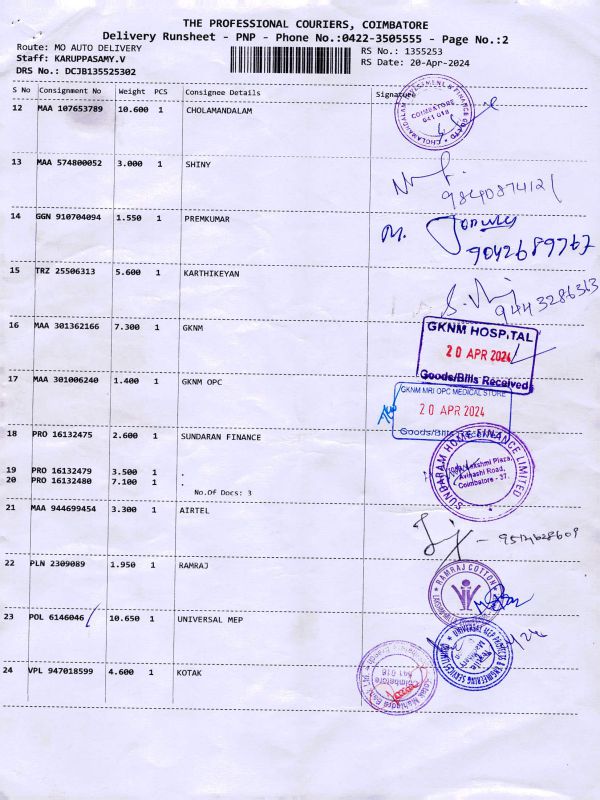 THE PROFESSIONAL COURIERS, COIMBATORE
Delivery Runsheet - PNP - Phone No.:0422-3505555 - Page No.:2
Route: MO AUTO DELIVERY
RS No.: 1355253
Staff: KARUPPASAMY.V
RS Date: 20-Apr-2024
DRS No.: DCJB135525302
S No Consignment No Weight PCS Consignee Details Signature
12 MAA 107653789 10.600 1 CHOLAMANDALAM
COIMBATORE
641 018
13 MAA 574800052 3.000 1 SHINY
9840874121
14 GGN 910704094 1.550 1 PREMKUMAR
M.
9042689767
15 TRZ 25506313 5.600 1 KARTHIKEYAN
9443286363
16 MAA 301362166 7.300 1 GKNM
GKNM HOSPITAL
20 APR 2024
Goods/Bills Received
17 MAA 301006240 1.400 1 GKNM OPC
GKNM MRI OPC MEDICAL STORE
20 APR 2024
Goods/Bills Received
18 PRO 16132475 2.600 1 SUNDARAN FINANCE
SUNDARAM HOME FINANCE LIMITED
Lakshmi Plaza,
Avinashi Road,
Coimbatore - 37.
19 PRO 16132479 3.500 1
20 PRO 16132480 7.100 1
No.Of Docs: 3
21 MAA 944699454 3.300 1 AIRTEL
22 PLN 2309089 1.950 1 RAMRAJ
RAMRAJ COTTON
23 POL 6146046 10.650 1 UNIVERSAL MEP
UNIVERSAL MEP PROJECTS & ENGINEERING SERVICES LIMITED
24 VPL 947018599 4.600 1 KOTAK
Kotak Mahindra Bank Ltd.
Coimbatore
641 018